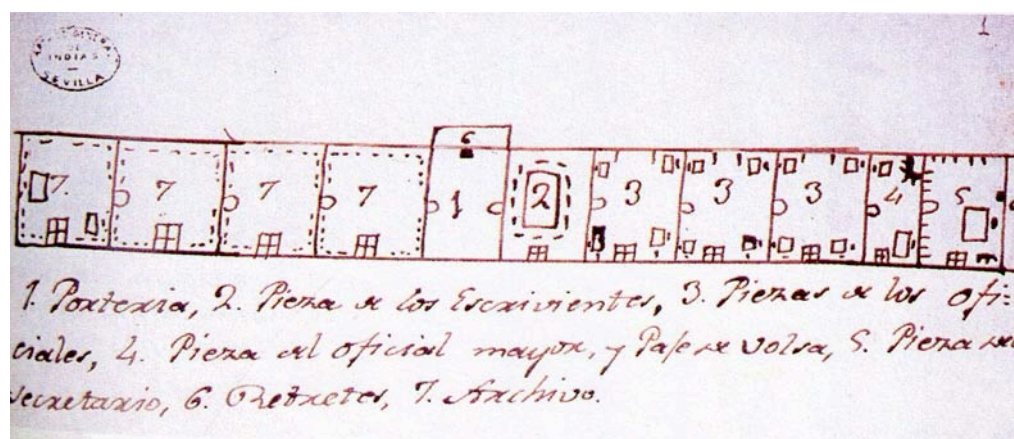 1
ARCHIVO GENERAL
DE
INDIAS
SEVILLA
6
7 7 7 7 1 2 3 3 3 4 5
1. Porteria, 2. Pieza de los Escrivientes, 3. Piezas de los ofi=
ciales, 4. Pieza del oficial mayor, y Paje de volsa, 5. Pieza del
Secretario, 6. Retretes, 7. Archivo.